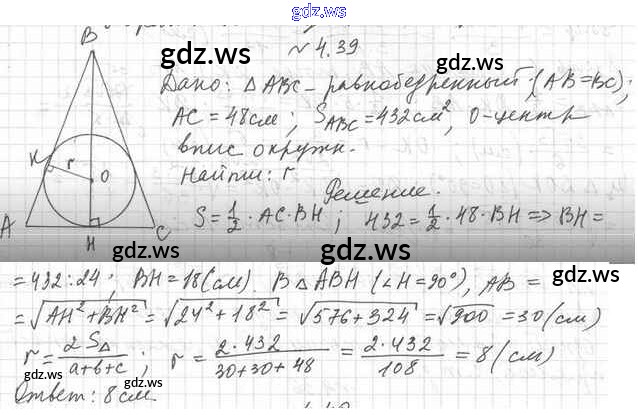 gdz.ws
№ 4.39
B
gdz.ws
gdz.ws
Дано: △ABC - равнобедренный, (AB=BC);
AC = 48см; S_ABC = 432см², O-центр
впис окружн.
K r O
Найти: r
Решение.
A H C
S = 1/2 · AC · BH ; 432 = 1/2 · 48 · BH => BH =
gdz.ws
gdz.ws
= 432 : 24 ; BH = 18 (см). В △ABH (∠H = 90°), AB =
= √AH² + BH² = √24² + 18² = √576 + 324 = √900 = 30 (см)
r = 2S△/a+b+c ; r = 2·432/30+30+48 = 2·432/108 = 8 (см)
Ответ: 8 см.
gdz.ws
gdz.ws